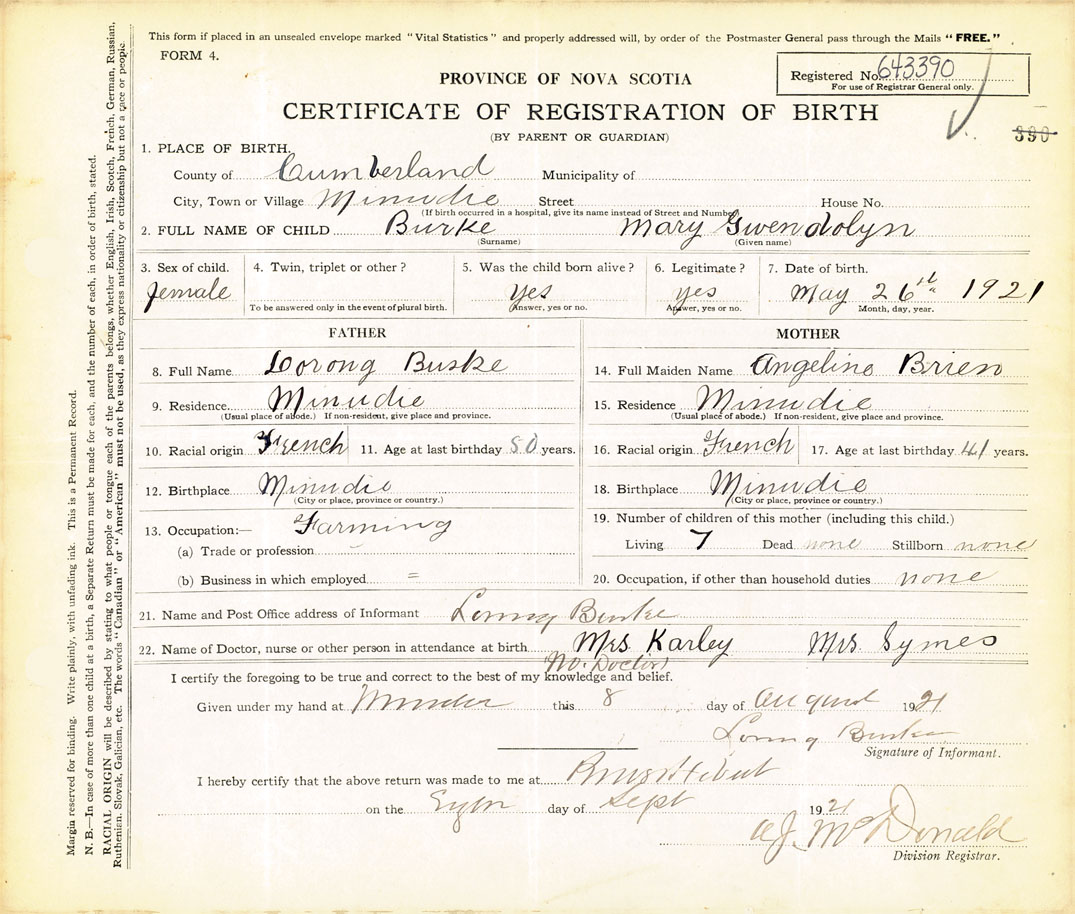 This form if placed in an unsealed envelope marked "Vital Statistics" and properly addressed will, by order of the Postmaster General pass through the Mails "FREE."
FORM 4.
Registered No. 643390
For use of Registrar General only.
PROVINCE OF NOVA SCOTIA
CERTIFICATE OF REGISTRATION OF BIRTH
(BY PARENT OR GUARDIAN)
390
1. PLACE OF BIRTH.
County of Cumberland Municipality of
City, Town or Village Minudie Street House No.
(If birth occurred in a hospital, give its name instead of Street and Number)
2. FULL NAME OF CHILD Burke Mary Gwendolyn
(Surname) (Given name)
3. Sex of child. 4. Twin, triplet or other? 5. Was the child born alive? 6. Legitimate? 7. Date of birth.
female yes yes May 26th 1921
To be answered only in the event of plural birth. Answer, yes or no. Answer, yes or no. Month, day, year.
FATHER MOTHER
8. Full Name Burke 14. Full Maiden Name Angeline Brien
9. Residence Minudie 15. Residence Minudie
(Usual place of abode.) If non-resident, give place and province. (Usual place of abode.) If non-resident, give place and province.
10. Racial origin French 11. Age at last birthday 50 years. 16. Racial origin French 17. Age at last birthday 41 years.
12. Birthplace Minudie 18. Birthplace Minudie
(City or place, province or country.) (City or place, province or country.)
13. Occupation:— Farming 19. Number of children of this mother (including this child.)
(a) Trade or profession Living 7 Dead none Stillborn none
(b) Business in which employed = 20. Occupation, if other than household duties none
21. Name and Post Office address of Informant Burke
22. Name of Doctor, nurse or other person in attendance at birth Mrs. Karley Mrs. Symes
No. Doctor
I certify the foregoing to be true and correct to the best of my knowledge and belief.
Given under my hand at Minudie this 8 day of August 1921
Burke
Signature of Informant.
I hereby certify that the above return was made to me at
on the day of Sept 1921
A J. McDonald
Division Registrar.
Margin reserved for binding. Write plainly, with unfading ink. This is a Permanent Record.
N. B.—In case of more than one child at a birth, a Separate Return must be made for each, and the number of each, in order of birth, stated.
RACIAL ORIGIN will be described by stating to what people or tongue each of the parents belongs, whether English, Irish, Scotch, French, German, Russian,
Ruthenian, Slovak, Galician, etc. The words "Canadian" or "American" must not be used, as they express nationality or citizenship but not a race or people